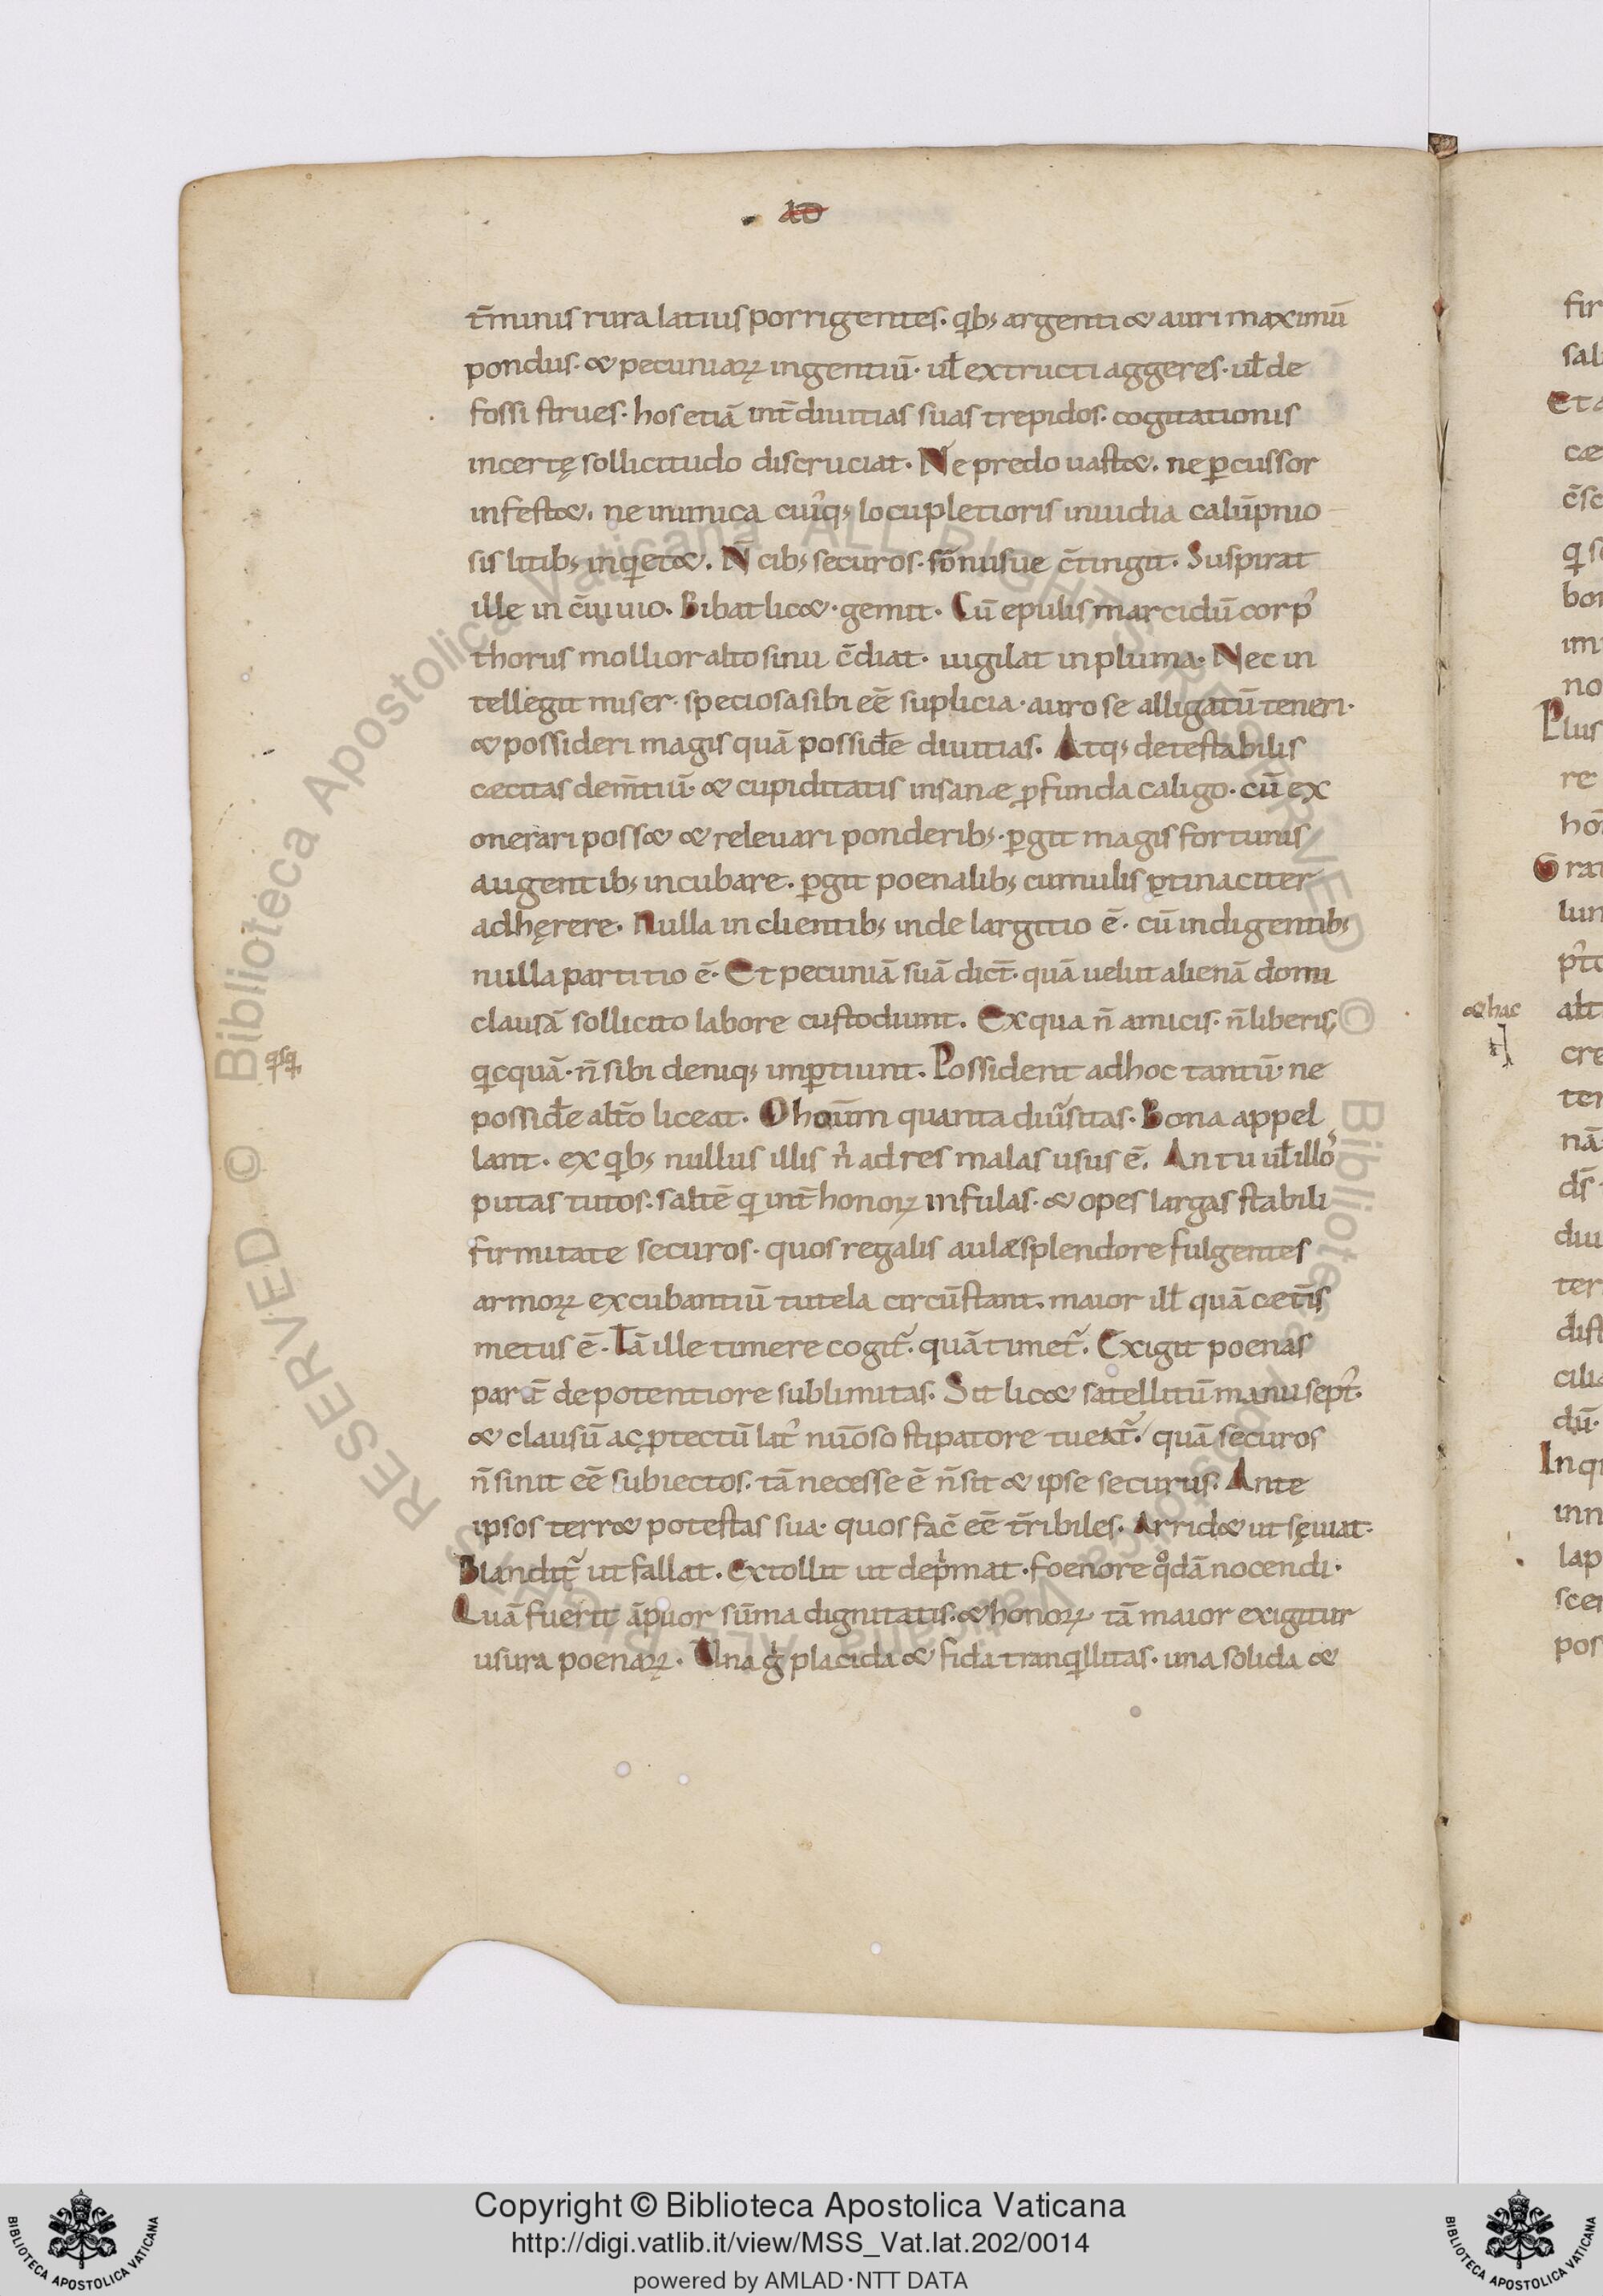 t̄minis rura latius porrigentes. qib; argenti & auri maximū
pondus. & pecuniaꝝ ingentiū. ul̄ extructi aggeres. ul̄ de
fossi strues. hos etiā int̄ diuitias suas trepidos. cogitationis
incertę sollicitudo discruciat. Ne predo uast&. ne ꝑcussor
infest&. ne inimica cuiꝰq; locupletioris inuidia calūpnio
sis litib; inqiet&. N̄ cib; securos. sōnusue c̄tingit. Suspirat
ille in c̄uiuio. Bibat lic&. gemit. Cū epulis marcidū corpꝰ
thorus mollior alto sinu c̄diat. uigilat in pluma. Nec in
tellegit miser. speciosa sibi eē suplicia. auro se alligatū teneri.
& possideri magis quā possid̄e diuitias. Atq; detestabilis
cæcitas dem̄tiū. & cupiditatis insanæ ꝓfunda caligo. cū ex
onerari poss& & releuari ponderib;. ꝑgit magis fortunis
augentib; incubare. ꝑgit poenalib; cumulis ꝑtinaciter
adhęrere. Nulla in clientib; inde largitio ē. cū indigentib;
nulla partitio ē. Et pecuniā suā dicт̄. quā uelut alienā domi
clausā sollicito labore custodiunt. Ex qua n̄ amicis. n̄ liberis
qicquā. n̄ sibi deniq; imꝑtiunt. Possident ad hoc tantū. ne
possid̄e alt̄o liceat. O hoıūm quanta diūsitas. Bona appel
lant. ex qib; nullus illis nͥ ad res malas usus ē. An tu ul̄ illoꝰ
putas tutos. saltē qi int̄ honoꝝ infulas. & opes largas stabili
firmitate securos. quos regalis aulæ splendore fulgentes
armoꝝ excubantiū tutela circūstant. maior ill̄ quā cæt̄is
metus ē. Tā ille timere cogit᷑. quā timet᷑. Exigit poenas
parit̄ de potentiore sublimitas. Sit lic& satellitū manu septꝰ.
& clausū ac ꝓtectū latꝰ nūoso stipatore tueat᷑. quā securos
n̄ sinit eē subiectos. tā necesse ē n̄ sit & ipse securus. Ante
ipsos terr& potestas sua. quos fac̄ eē t̄ribiles. Arrid& ut sęuiat.
Blandit᷑ ut fallat. Extollit ut depͥmat. foenore qͦdā nocendi.
Quā fuerit āpiꝉor sūma dignitatis. & honoꝝ tā maior exigitur
usura poenaꝝ. Una gͥ placida & fida tranqillitas. una solida &
&hac
Copyright © Biblioteca Apostolica Vaticana
http://digi.vatlib.it/view/MSS_Vat.lat.202/0014
powered by AMLAD·NTT DATA
BIBLIOTECA APOSTOLICA VATICANA
BIBLIOTECA APOSTOLICA VATICANA